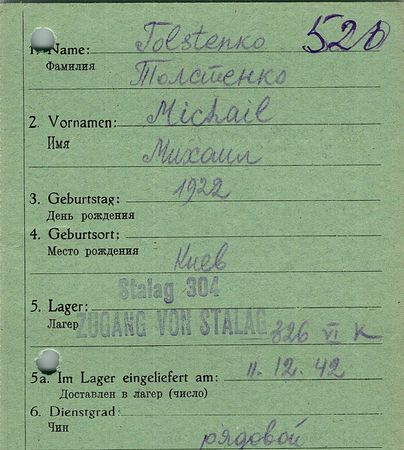 520
1. Name: Tolstenko
Фамилия Толстенко
2. Vornamen: Michail
Имя Михаил
3. Geburtstag: 1922
День рождения
4. Geburtsort:
Место рождения Киев
Stalag 304
5. Lager:
Лагер ZUGANG VON STALAG 326 VI K
5a. Im Lager eingeliefert am: 11. 12. 42
Доставлен в лагер (число)
6. Dienstgrad:
Чин рядовой